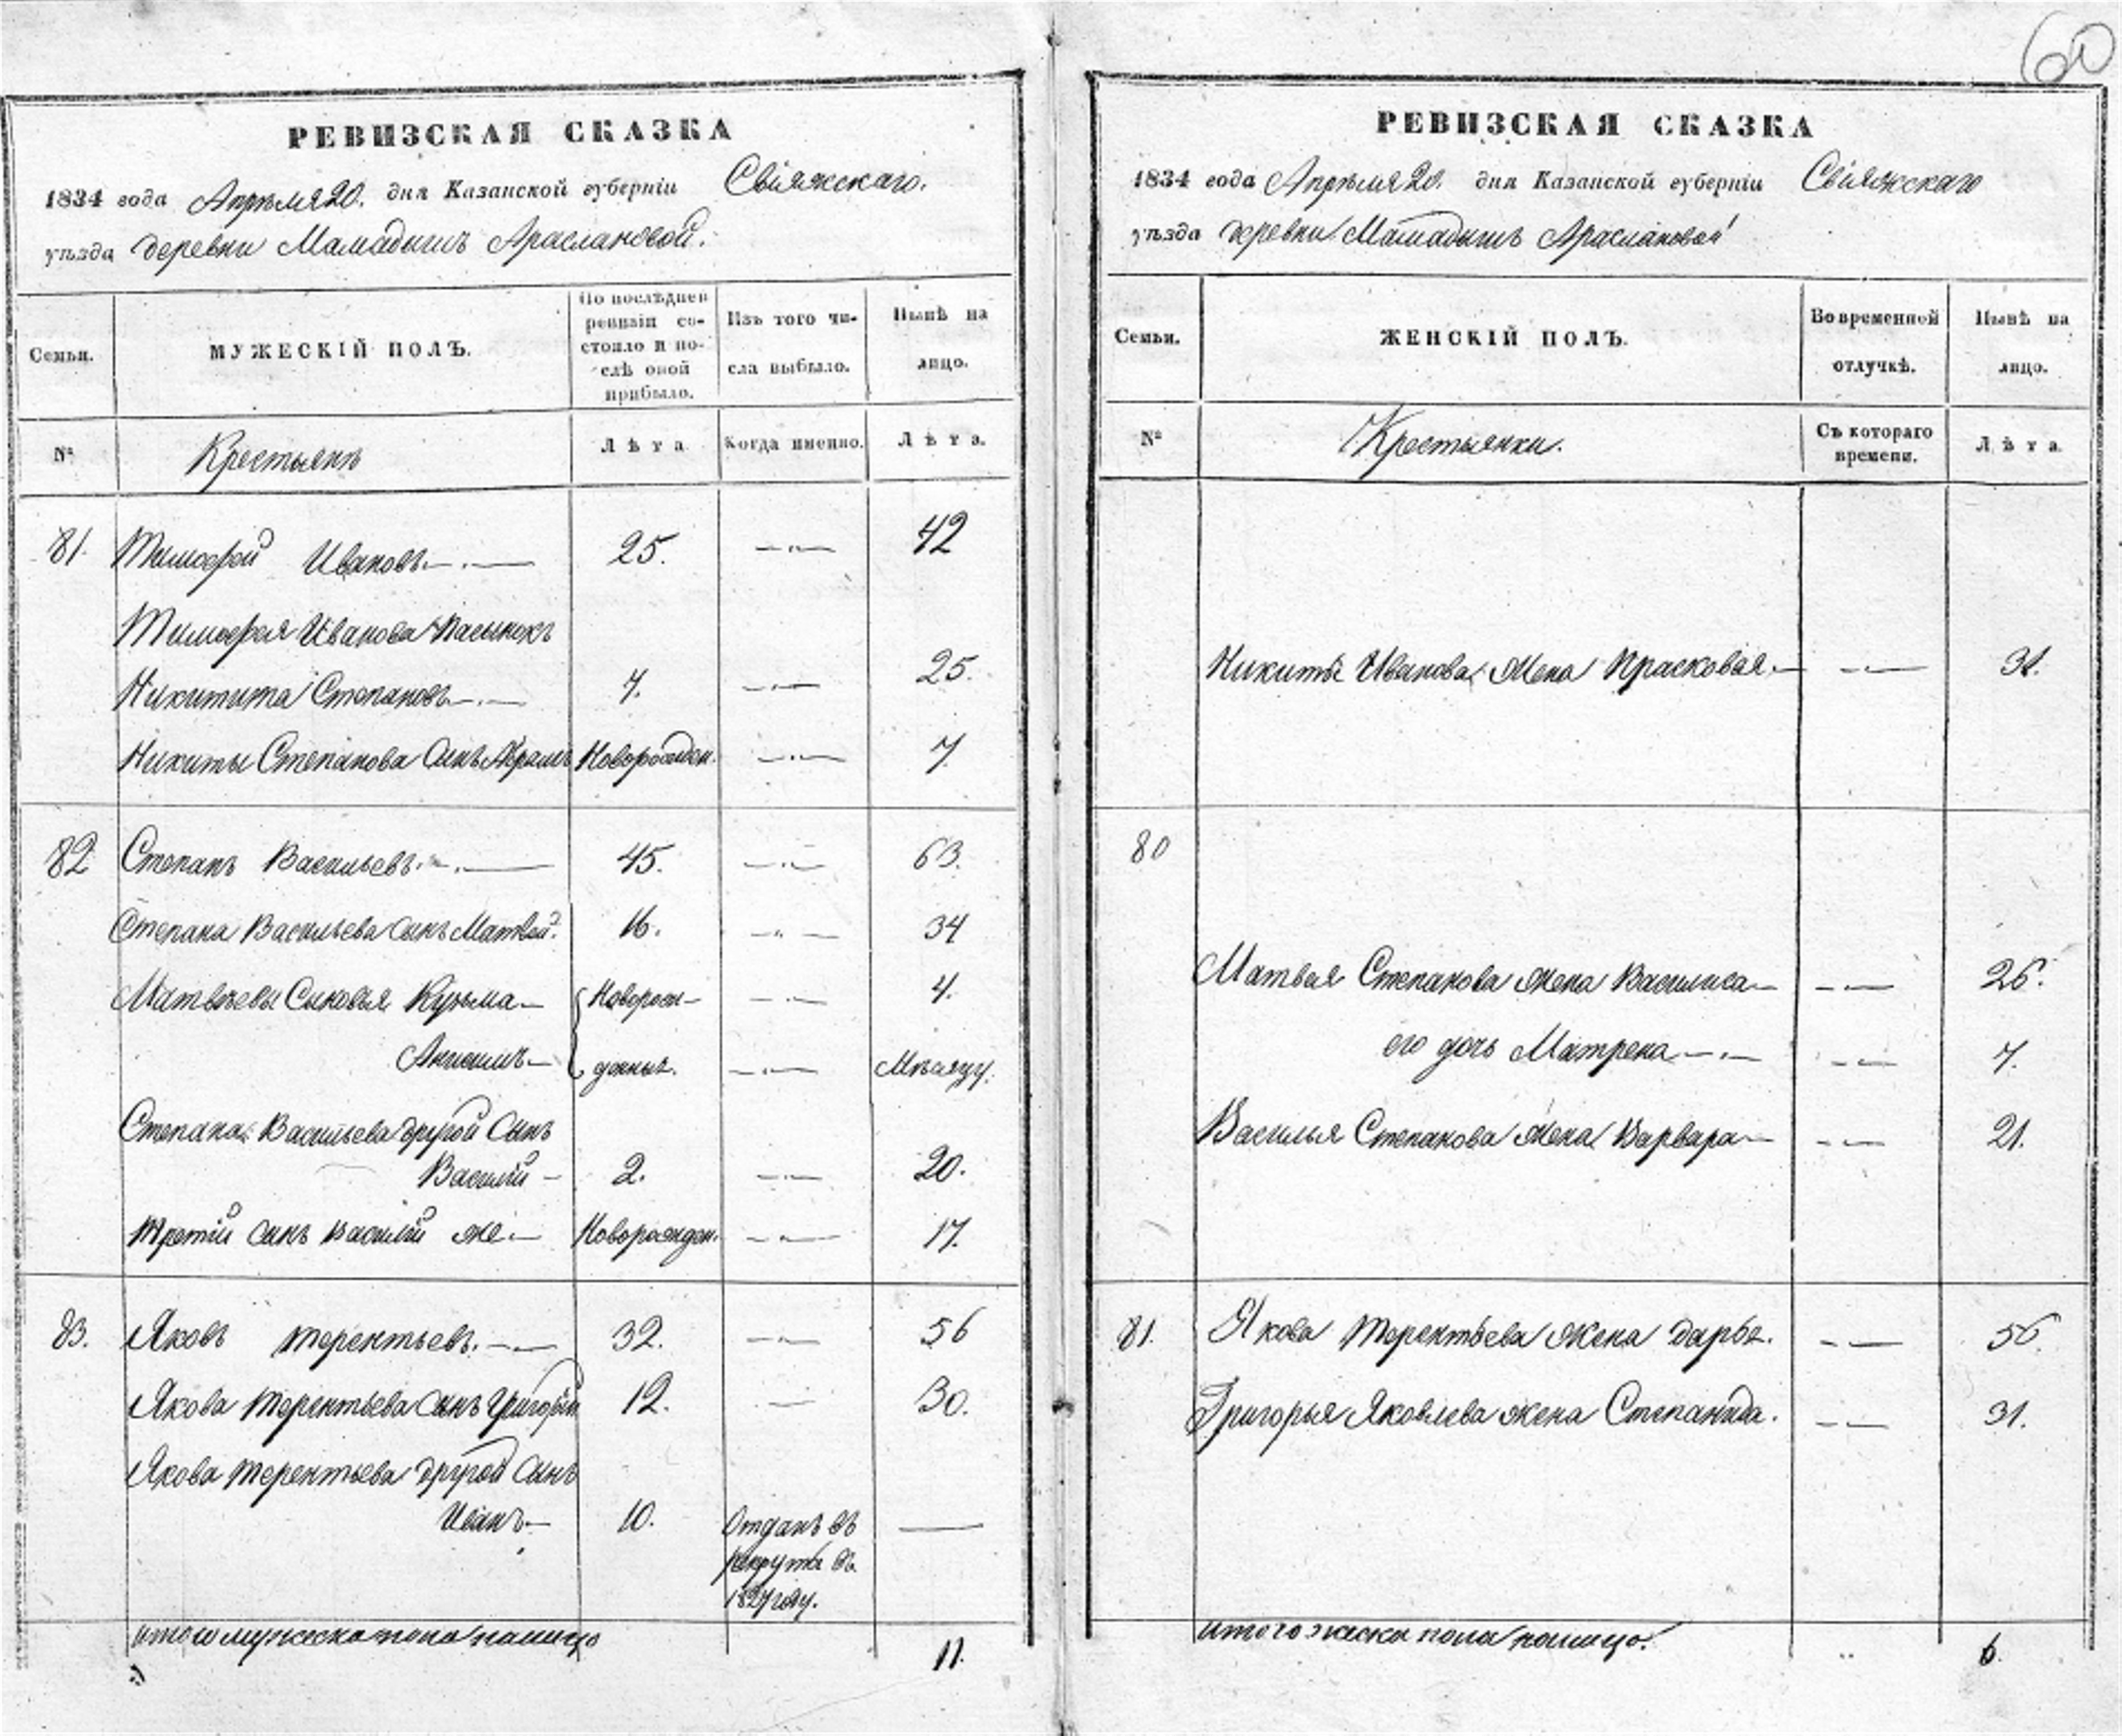 60
РЕВИЗСКАЯ СКАЗКА
1834 года Апреля 20. дня Казанской губерніи Свіяжскаго.
уѣзда деревни Мамадышъ Араслановой.
Семьи.
МУЖЕСКІЙ ПОЛЪ.
По послѣдней ревизіи состояло и послѣ оной прибыло.
Изъ того числа выбыло.
Нынѣ на лицо.
№
Крестьянъ
Лѣта
Когда именно.
Лѣта.
81. Тимофей Ивановъ 25. 42
Тимофея Иванова Пасынокъ
Никитита Степановъ 7. 25.
Никиты Степанова сынъ Новорожден. 7
82 Степанъ Васильевъ. 45. 63.
Степана Васильева сынъ Матвей. 16. 34
Матвѣевы Сыновья Кузьма Новорож- 4.
Анисимъ денныя. Мѣсяцу.
Степана Васильева другой Сынъ
Василій 2. 20.
Третій сынъ Василій же Новорожден. 17.
83. Яковъ Терентьевъ. 32. 56
Якова Терентьева сынъ Григорій 12. 30.
Якова Терентьева другой Сынъ
Иванъ 10. Отданъ въ
рекруты въ
1827 году.
итого мужеска пола налицо 11.
РЕВИЗСКАЯ СКАЗКА
1834 года Апрѣля 20. дня Казанской губерніи Свіяжскаго
уѣзда деревни Мамадышъ Араслановой
Семьи.
ЖЕНСКІЙ ПОЛЪ.
Во временной отлучкѣ.
Нынѣ на лицо.
№
Крестьянки.
Съ котораго времени.
Лѣта.
Никиты Иванова Жена Прасковья.
80
Матвея Степанова жена Василиса 26.
его дочь Матрена 7.
Василья Степанова Жена Варвара 21.
81. Якова Терентьева жена Дарья. 56.
Григорья Яковлева жена Степанида. 31.
итого женска пола налицо. 6.